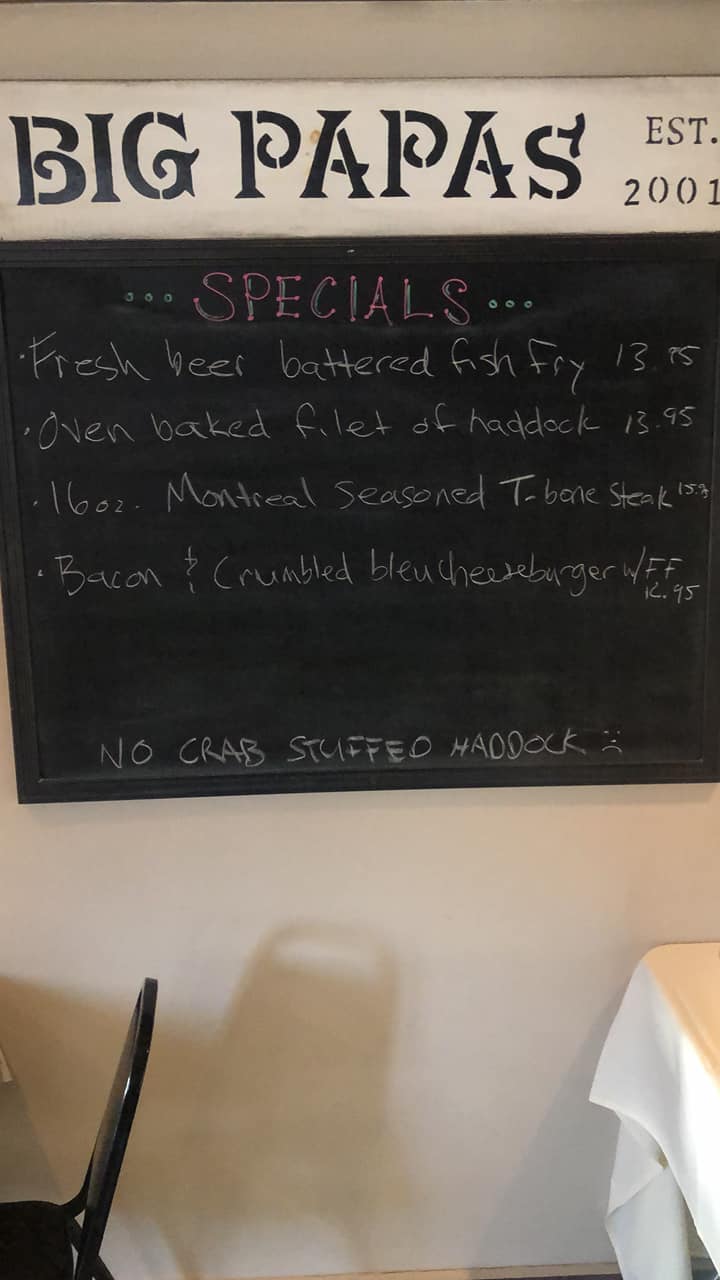 BIG PAPAS
EST.
2001
... SPECIALS ...
· Fresh beer battered fish Fry 13.95
· Oven baked filet of haddock 13.95
· 16oz. Montreal Seasoned T-bone Steak
· Bacon & Crumbled bleucheeseburger W/FF
12.95
NO CRAB STUFFED HADDOCK :(